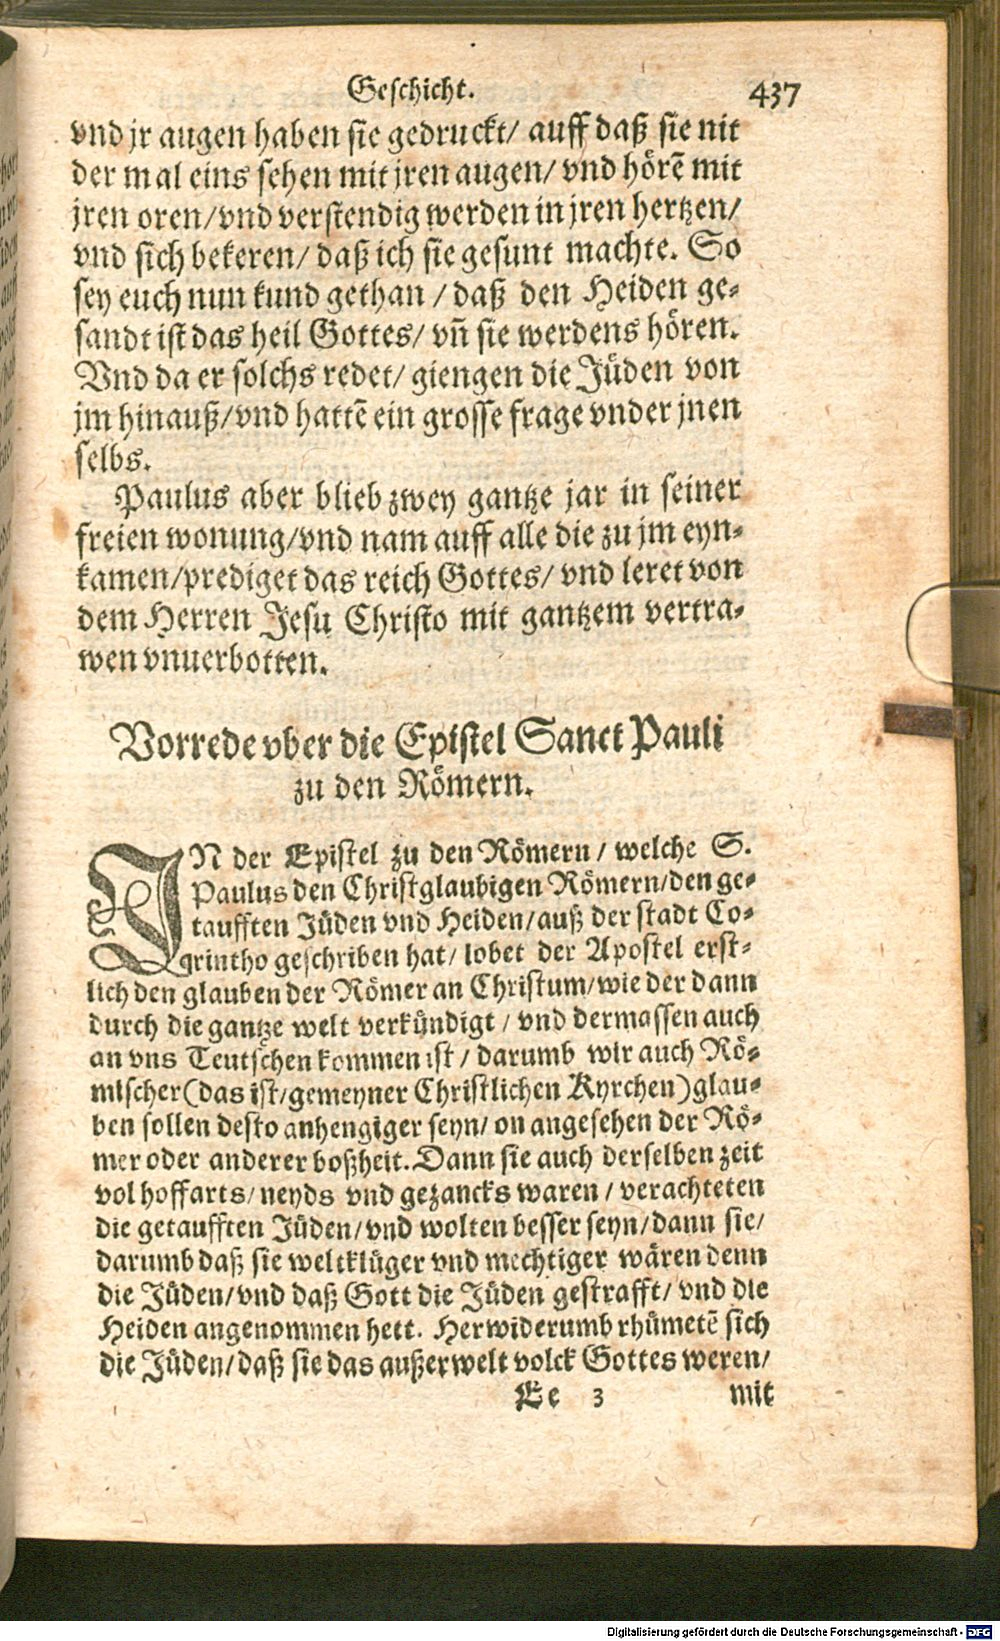 Geschicht. 437
vnd jr augen haben sie gedruckt/ auff daß sie nit
der mal eins sehen mit jren augen/ vnd hörē mit
jren oren/vnd verstendig werden in jren hertzen/
vnd sich bekeren/ daß ich sie gesunt machte. So
sey euch nun kund gethan / daß den Heiden ge⸗
sandt ist das heil Gottes/ vñ sie werdens hören.
Vnd da er solchs redet/ giengen die Jüden von
jm hinauß/vnd hattē ein grosse frage vnder jnen
selbs.
Paulus aber blieb zwey gantze jar in seiner
freien wonung/vnd nam auff alle die zu jm eyn⸗
kamen/prediget das reich Gottes/ vnd leret von
dem Herren Jesu Christo mit gantzem vertra⸗
wen vnuerbotten.
Vorrede vber die Epistel Sanct Pauli
zu den Römern.
IN der Epistel zu den Römern / welche S.
Paulus den Christglaubigen Römern/den ge⸗
taufften Jüden vnd Heiden/auß der stadt Co⸗
rintho geschriben hat/ lobet der Apostel erst⸗
lich den glauben der Römer an Christum/wie der dann
durch die gantze welt verkündigt / vnd dermassen auch
an vns Teutschen kommen ist / darumb wir auch Rö⸗
mischer (das ist/gemeyner Christlichen Kyrchen) glau⸗
ben sollen desto anhengiger seyn/ on angesehen der Rö⸗
mer oder anderer boßheit. Dann sie auch derselben zeit
vol hoffarts/ neyds vnd gezancks waren / verachteten
die getaufften Jüden/vnd wolten besser seyn/dann sie/
darumb daß sie weltklüger vnd mechtiger wären denn
die Jüden/vnd daß Gott die Jüden gestrafft/ vnd die
Heiden angenommen hett. Herwiderumb rhümetē sich
die Jüden/daß sie das außerwelt volck Gottes weren/
Ee 3 mit
Digitalisierung gefördert durch die Deutsche Forschungsgemeinschaft - DFG